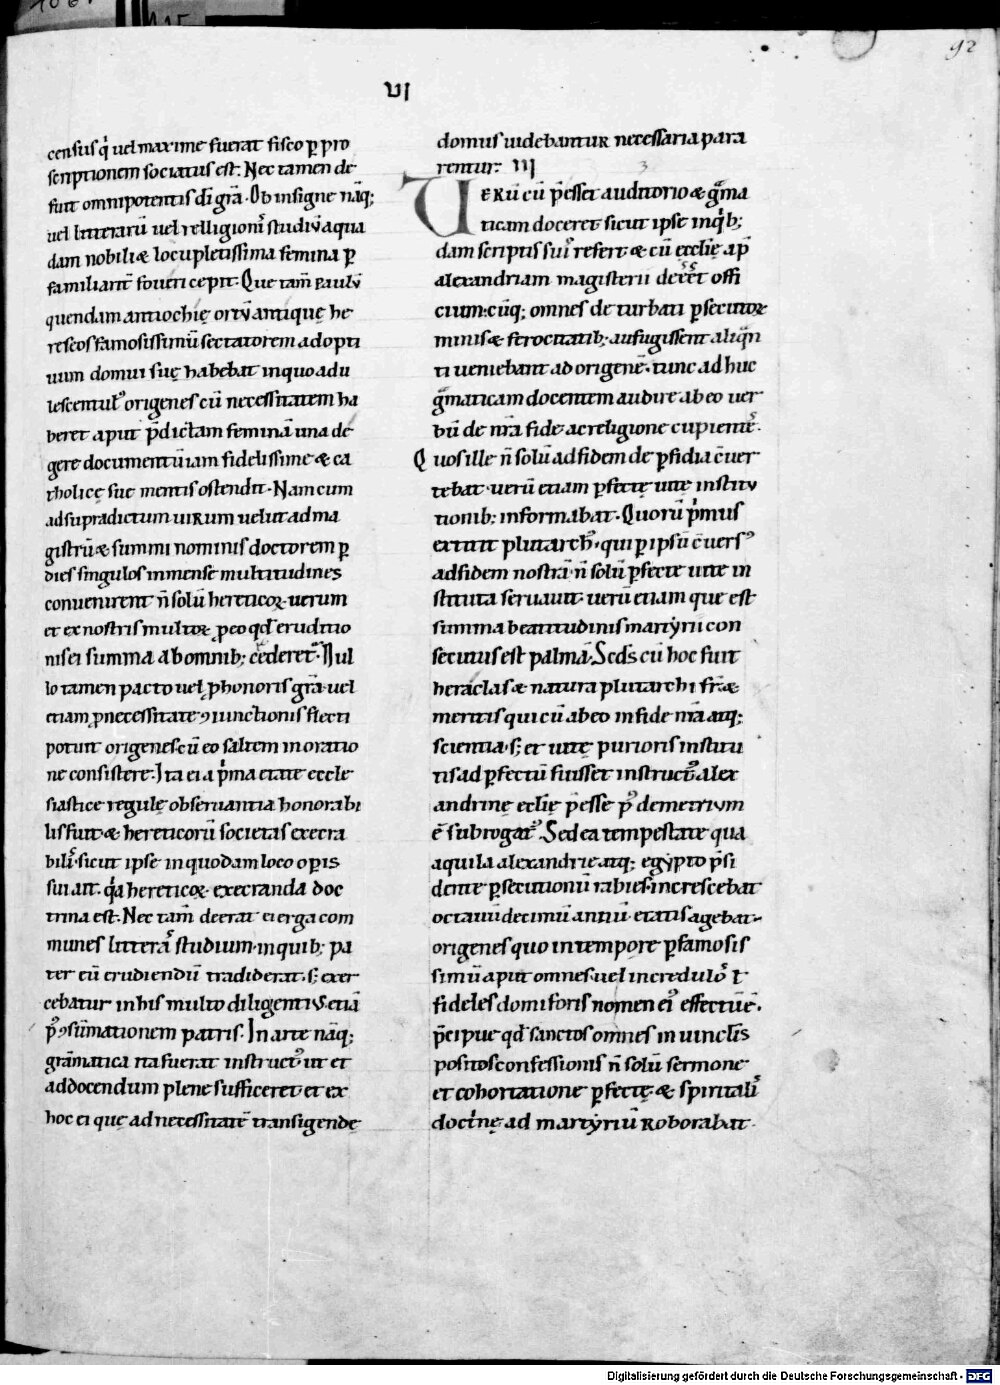 92
VI
census q̇ uel maxime fuerat fisco ꝑ pro
scriptionem sociatus est. Nec tamen de
fuit omnipotentis dī gr̄a. Ob insigne nāq;
uel litterarū uel relligionis studiū aqua
dam nobili & locupletissima femina ꝑ
familiarit̄ foueri cepit. Que tam̄ paulū
quendam antiochię ortū antique he
reseos famosissimū sectatorem adopti
uum domui suę habebat in quo adu
lescentulꝰ origenes cū necessitatem ha
beret aput p̄dictam feminā una de
gere documentū iam fidelissime & ca
tholicę suę mentis ostendit. Nam cum
ad supradictum uirum uelut ad ma
gistrū & summi nominis doctorem ꝑ
dies singulos inmense multitudines
conuenirent n̄ solū hereticoꝝ uerum
et ex nostris multoꝝ ꝑeo qđ eruditio
nis ei summa ab omnib; cederet̄. Nul
lo tamen pacto uel ꝓ honoris gr̄a uel
etiam ꝓ necessitate ꝯiunctionis flecti
potuit origenes cū eo saltem in oratio
ne consistere. Ita ei a p̍ma etate eccle
siastice regulę obseruantia honorabi
lis fuit & hereticorū societas execra
bilis. sicut ipse in quodam loco operis
sui ait. q̍a hereticoꝝ execranda doc
trina est. Nec tam̄ deerat ei erga com
munes litteras studium. in quib; pa
ter eū erudiendū tradiderat. s; exer
cebatur in his multo diligentius. etiā
pꝰ ꝯsūmationem patris. In arte nāq;
grāmatica ita fuerat instructꝰ ut et
ad docendum plene sufficeret et ex
hoc ei que ad necessitatē transigendę
domus uidebantur necessaria para
rentur. III
3
UERŪ cū p̄esset auditorio & g̃ma
ticam doceret sicut ipse in q̍b;
dam scriptis suis refert & cū ecclīę ap̄
alexandriam magisterii deeet offi
cium. cūq; omnes deturbati ꝑsecutoꝝ
minis & ferocitatib; aufugissent aliq̄n
ti ueniebant ad origenē. tunc adhuc
g̃maticam docentem audire ab eo uer
bū de nr̄a fide ac religione cupientes.
Quos ille n̄ solū ad fidem de perfidia c̄uer
tebat. uerū etiam ꝑfectę uitę institu
tionib; informabat. Quorū p̍mus
extitit plutarchꝰ. qui ꝑ ipsū c̄uersꝰ
ad fidem nostrā n̄ solū ꝑfecte uite in
stituta seruauit. uerū etiam que est
summa beatitudinis martyrii con
secutus est palmā. Scd̄s cū hoc fuit
heraclas & natura plutarchi fr̄ &
meritis qui cū ab eo in fide nr̄a atq;
scientia. s; et uitę purioris institu
tis ad ꝑfectū fuisset instructꝰ alex
andrinę eclīę p̄esse pꝰ demetrium
ē subrogatꝰ. Sed ea tempestate qua
aquila alexandrie atq; egypto p̄si
dente ꝑsecutionū rabies increscebat
octauū decimū annū etatis agebat
origenes quo in tempore ꝑ famosis
simū aput omnes. uel incredulos ł
fideles domi foris nomen eiꝰ effectū ē.
p̄cipue qđ sanctos omnes in uinclis
positos confessionis n̄ solū sermone
et cohortatione ꝑfectę & spiritalis
doct̍nę ad martyriū roborabat.
Digitalisierung gefördert durch die Deutsche Forschungsgemeinschaft - DFG